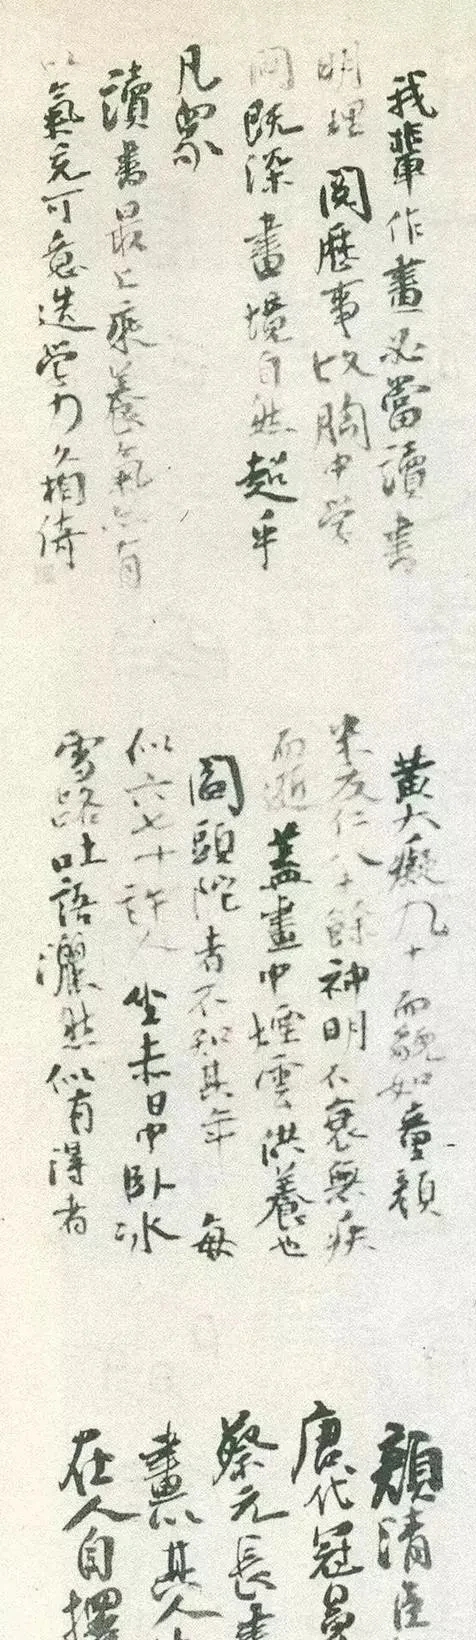 我輩作畫必當讀書
明理閱歷事故胸中學
問既深畫境自然超乎
凡眾
讀書最上乘養氣亦有
以氣充可意造學力久相倚
黃大癡九十而貌如童顏
米友仁八十餘神明不衰無疾
而逝蓋畫中煙雲供養也
閻頭陀者不知其年每
似六七十許人坐赤日中臥冰
雪路吐語灑然似有得者
顏清臣
唐代冠
蔡元長書
畫以其人
在人自擇